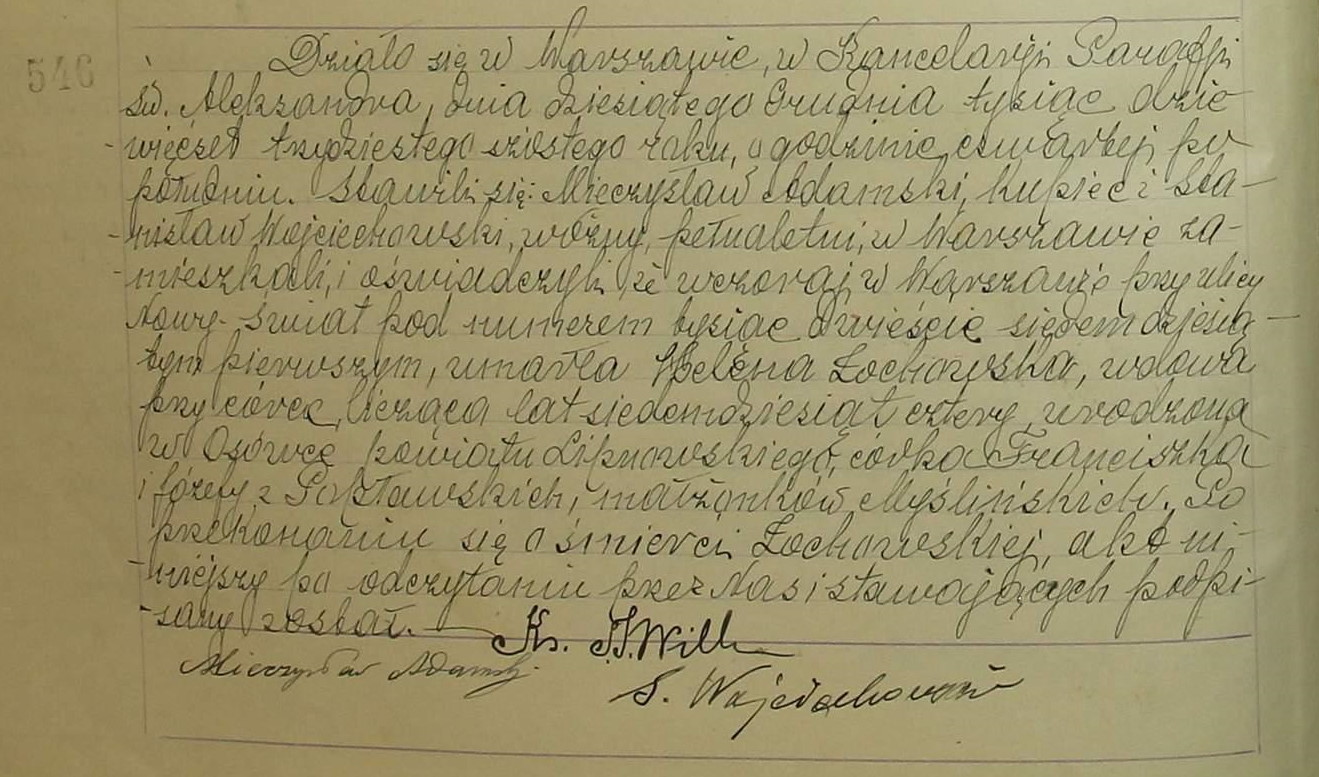 546
Działo się w Warszawie, w Kancelaryi Parafji
św. Aleksandra, dnia dziesiątego Grudnia tysiąc dzie-
-więćset trzydziestego szóstego roku, o godzinie czwartej po
południu. Stawili się: Mieczysław Adamski, kupiec i Sta-
-nisław Wojciechowski, woźny, pełnoletni, w Warszawie za-
-mieszkali, i oświadczyli, że wczoraj w Warszawie przy ulicy
Nowy-Świat pod numerem tysiąc dwieście siedemdziesią-
tym pierwszym, umarła Helena Żochowska, wdowa
przy córce, licząca lat siedemdziesiąt cztery, urodzona
w Osówce powiatu Lipnowskiego, córka Franciszka
i Józefy z małżonków Myślińskich. Po
przekonaniu się o śmierci Żochowskiej, akt ni-
-niejszy po odczytaniu przez Nas i stawających podpi-
-sany został. Ks. Will
Mieczysław Adamski
S. Wojciechowski